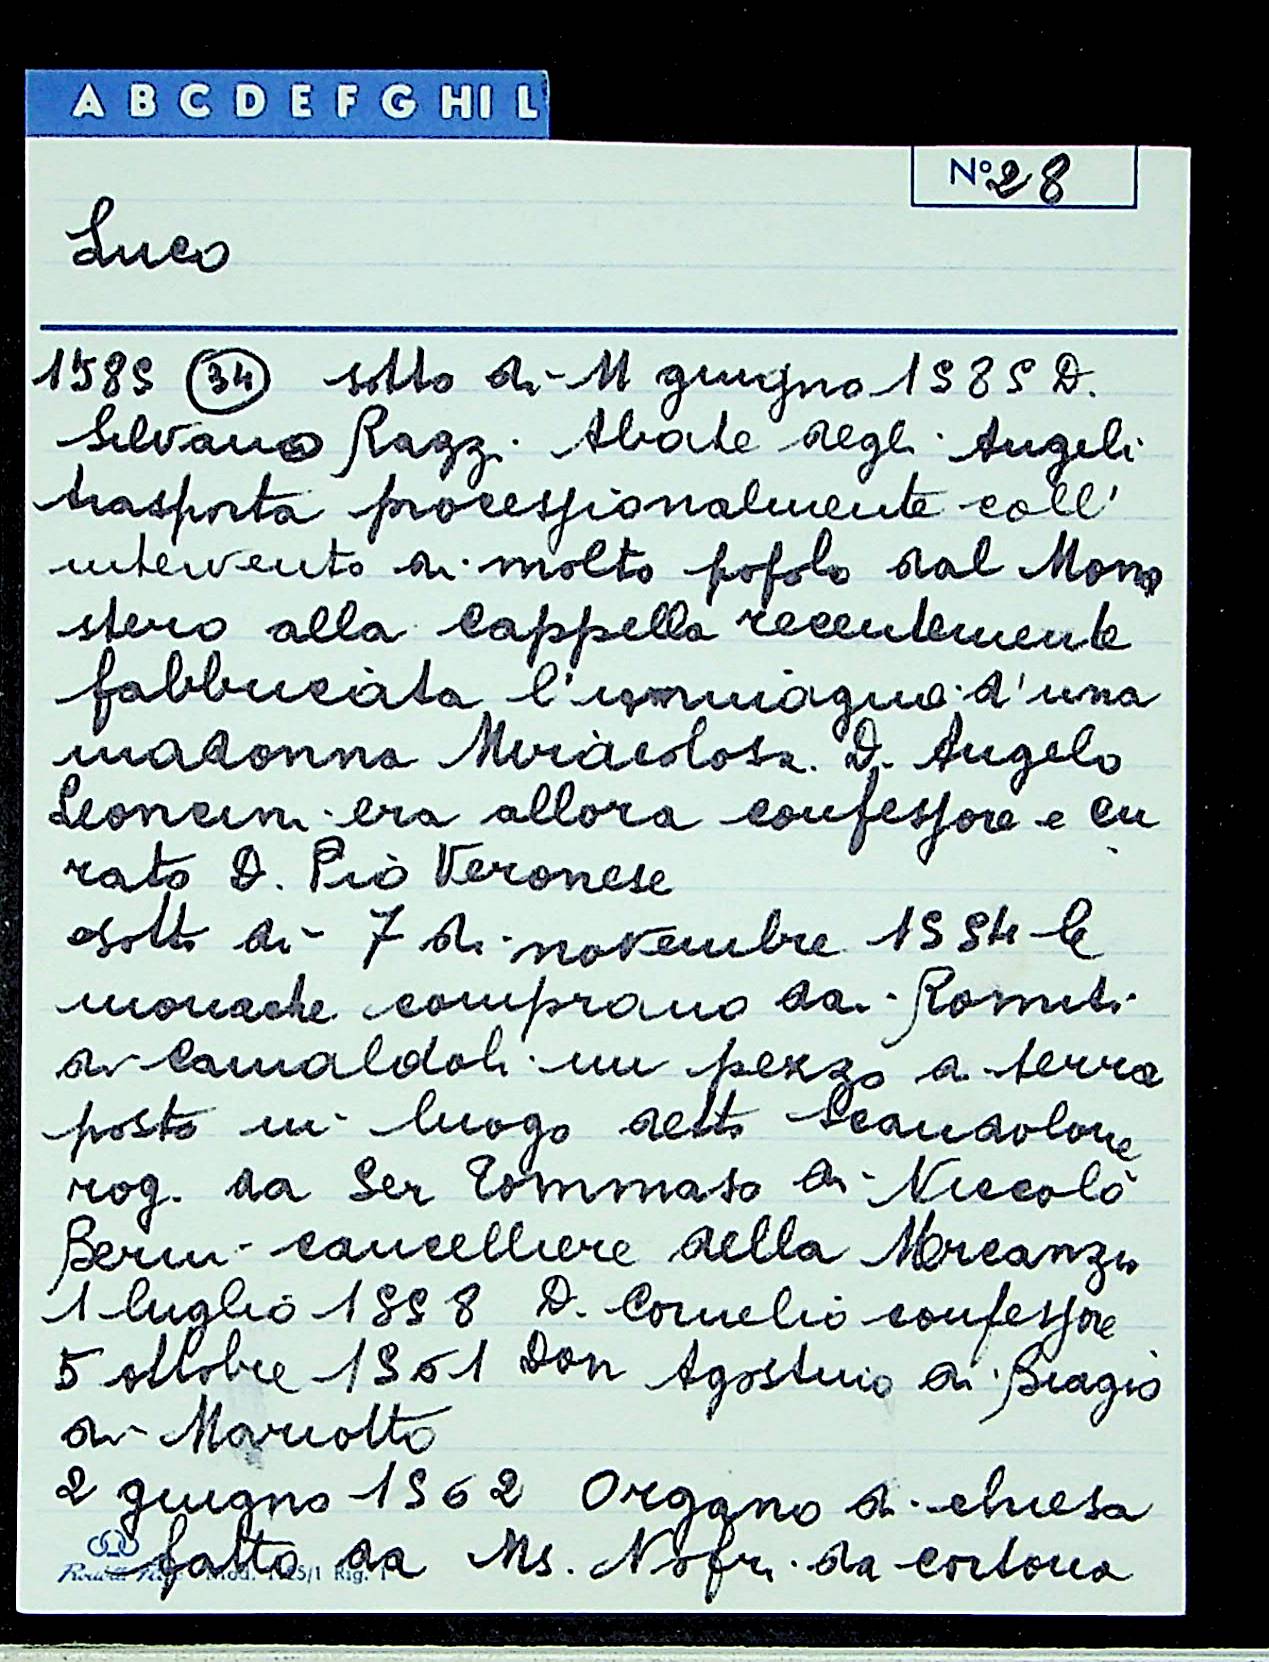 A B C D E F G HI L
N° 28
Luco
1585 (34) sotto di 11 giugno 1585 D.
Silvano Razzi Abate degli Angeli
trasporta processionalmente coll'
intervento di molto popolo dal Mona
stero alla Cappella recentemente
fabbricata l'immagine d'una
madonna Miracolosa. D. Angelo
Leoncini era allora confessore e cu
rato D. Pio Veronese
sotto di 7 di novembre 1554 le
monache comprano dai Romiti
di Camaldoli un pezzo di terra
posto in luogo detto Scandolone
rog. da Ser Tommaso di Niccolò
Berni cancelliere della Mercanzia
1 luglio 1558 D. Cornelio confessore
5 ottobre 1561 Don Agostino di Biagio
di Mariotto
2 giugno 1562 Organo di chiesa
fatto da Ms. Nofri da cortona